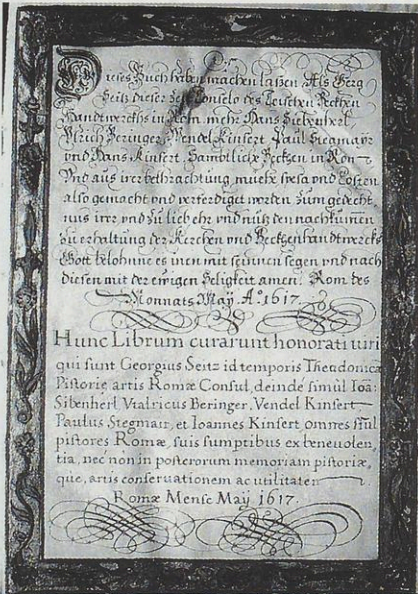 Dieses Buch haben machen laßen Als Gerg
Seitz dieser Zeit Conselo des Teischen Beckhen
Handtwerckhs in Rom mehr Hans Siebenherl
Vlrich Beringer, Wendel Kinsert, Paul Stegmayr
vnd Hans Kinsert, Sambtliche Beckhen in Rom
Vnd aus irer bethrachtung müehe spesa vnd Costen
also gemacht vnd verferdiget worden zum gedecht,
nus irer vnd zu lieb ehr vnd nutz den nachkumen
zu erhaltung der Kerchen vnd Beckhenhandtwercks
Gott belohnne es inen mit seinnen segen vnd nach
diesen mit der ewigen Seligkeit amen. Rom des
Monnats May. Aº 1617.
Hunc Librum curarunt honorati uiri
qui sunt Georgius Seitz id temporis Theodonicæ
Pistoriæ artis Romæ Consul, deinde simul Ioa:
Sibenherl Vldricus Beringer, Vendel Kinsert
Paulus Stegmair, et Ioannes Kinsert omnes simul
pistores Romæ, suis sumptibus ex beneuolen,
tia, nec non in posterorum memoriam pistoriæ,
que, artis conseruationem ac utilitatem
Romæ Mense Maÿ 1617.